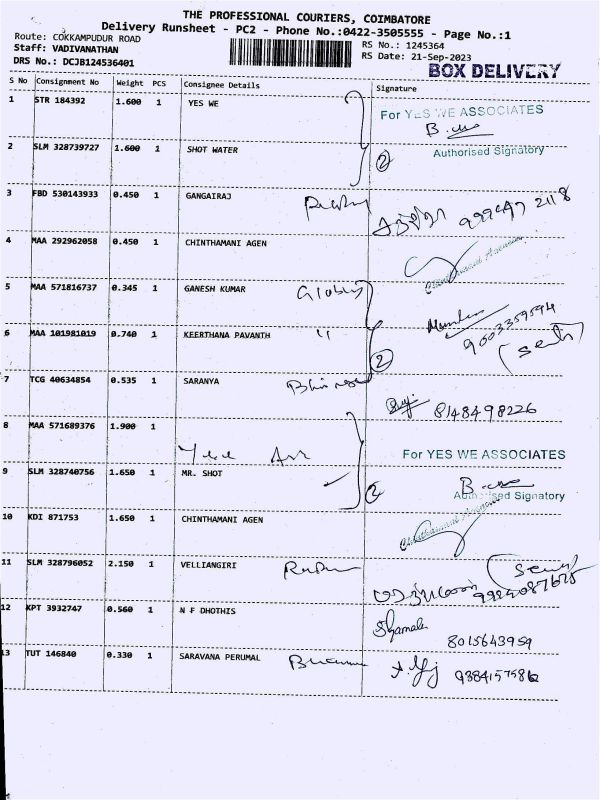 THE PROFESSIONAL COURIERS, COIMBATORE
Delivery Runsheet - PC2 - Phone No.:0422-3505555 - Page No.:1
Route: COKKAMPUDUR ROAD
RS No.: 1245364
Staff: VADIVANATHAN
RS Date: 21-Sep-2023
DRS No.: DCJB124536401
BOX DELIVERY
S No Consignment No Weight PCS Consignee Details Signature
1 STR 184392 1.600 1 YES WE
For YES WE ASSOCIATES
2 SLM 328739727 1.600 1 SHOT WATER
2 Authorised Signatory
3 FBD 530143933 0.450 1 GANGAIRAJ
4 MAA 292962058 0.450 1 CHINTHAMANI AGEN
Chinthamani Agencies
5 MAA 571816737 0.345 1 GANESH KUMAR
9003359594
6 MAA 101981019 0.740 1 KEERTHANA PAVANTH "
2
7 TCG 40634854 0.535 1 SARANYA
8148498226
8 MAA 571689376 1.900 1
For YES WE ASSOCIATES
9 SLM 328740756 1.650 1 MR. SHOT
2 Authorised Signatory
10 KDI 871753 1.650 1 CHINTHAMANI AGEN
Chinthamani Agencies
11 SLM 328796052 2.150 1 VELLIANGIRI
12 KPT 3932747 0.560 1 N F DHOTHIS
Shyamala
8015643959
13 TUT 146840 0.330 1 SARAVANA PERUMAL
9384157586